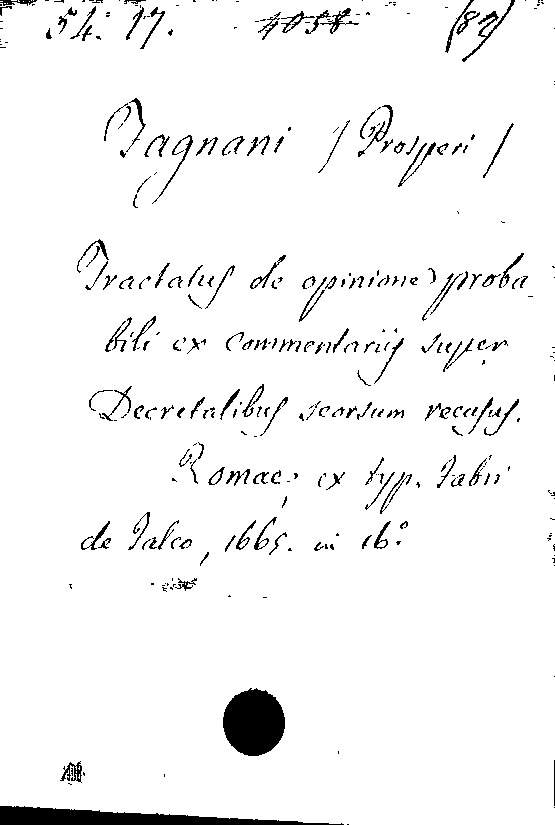 54: 17. 4058 (82)
Fagnani (Prosperi)
Tractatus de opinione proba
bili ex commentariis super
Decretalibus seorsum recusus.
Romae, ex typ. Fabii
de Falco, 1665. in 16º